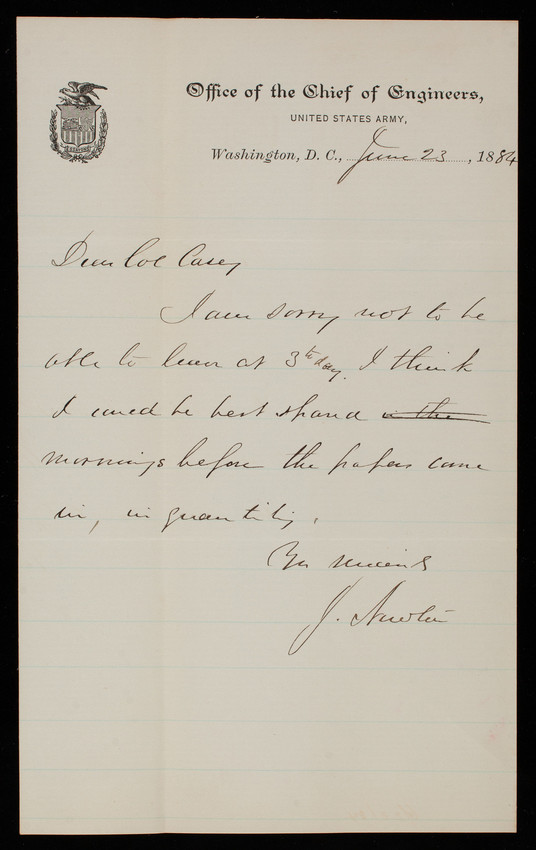 Office of the Chief of Engineers,
UNITED STATES ARMY,
Washington, D. C., June 23, 1884
Dear Col Casey
I am sorry not to be
able to leave at 3 to day. I think
I could be best spared in the
mornings before the papers come
in, in quantity.
Yrs
J. Newton